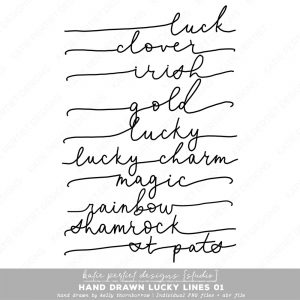 luck
clover
irish
gold
lucky
lucky charm
magic
rainbow
shamrock
st pats
katie pertiet designs [studio]
HAND DRAWN LUCKY LINES 01
hand drawn by kelly thornborrow | individual PNG files + abr file